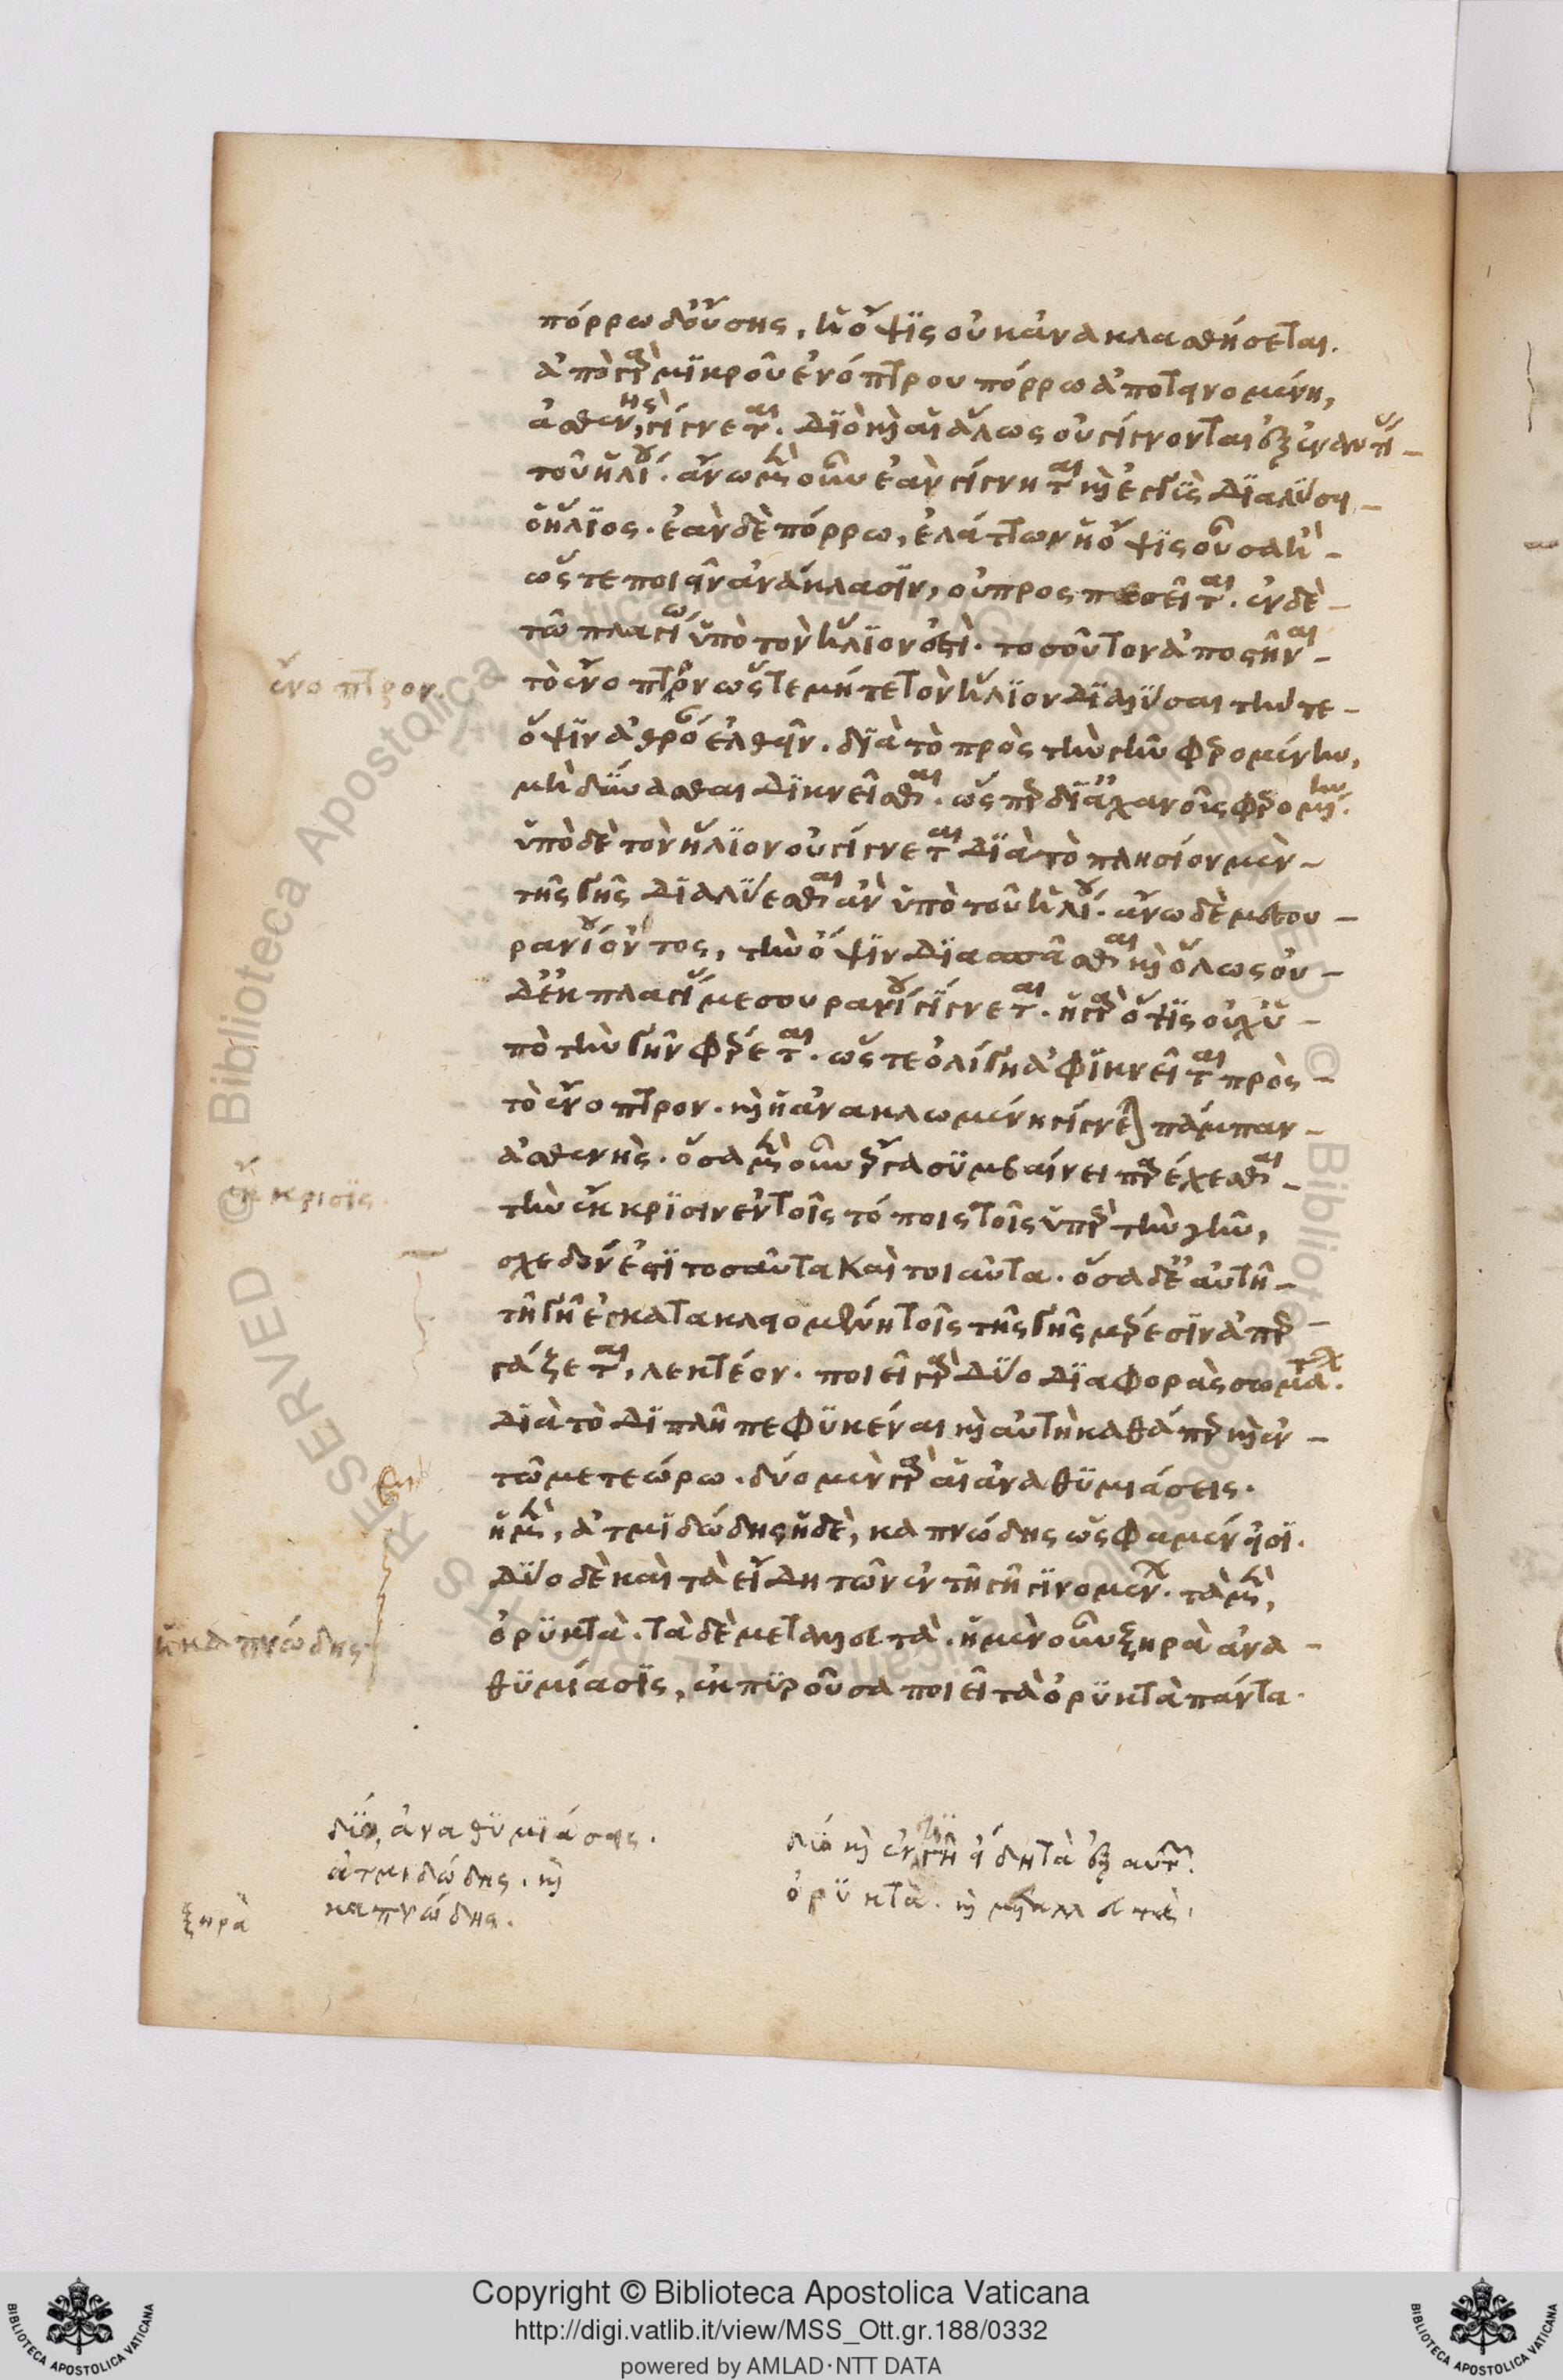 πόρρω δ' οὔσης, ἡ ὄψις οὐκ ἀνακλασθήσεται.
ἀπὸ γὰρ μικροῦ ἐνόπτρου πόρρω ἀποτεινομένη,
ἀσθενὴς γίγνεται. διὸ καὶ αἱ ἅλως οὐ γίγνονται ἐξ ἐναντί-
του ἡλίου. ἄνω μὲν οὖν ἐὰν γίγνηται καὶ ἐγγὺς διαλύσει
ὁ ἥλιος. ἐὰν δὲ πόρρω, ἐλάττων ἡ ὄψις οὖσα ἢ
ὥστε ποιεῖν ἀνάκλασιν, οὐ προσπεσεῖται. ἐν δὲ
τῶ πλαγίω ὑπὸ τὸν ἥλιον ἐστὶ τοσοῦτον ἀποστῆναι
τὸ ἔνοπτρον ὥστε μήτε τὸν ἥλιον διαλῦσαι τήν τε
ὄψιν ἀθρόον ἐλθεῖν. διὰ τὸ πρὸς τὴν γῆν φερομένην,
μὴ δύνασθαι διικνεῖσθαι. ὥσπερ δι' ἀχανοῦς φερομένην.
ὑπὸ δὲ τὸν ἥλιον οὐ γίγνεται διὰ τὸ πλησίον μὲν
τῆς γῆς διαλύεσθαι ἂν ὑπὸ τοῦ ἡλίου. ἄνω δὲ μεσου-
ρανίου ὄντος, τὴν ὄψιν διασπᾶσθαι καὶ ὅλως οὐ-
δ' ἐκ πλαγίου μεσουρανίου γίγνεται. ἡ γὰρ ὄψις οὐχ ὑ-
πὸ τὴν γῆν φέρεται. ὥστε ὀλίγη ἀφικνεῖται πρὸς
τὸ ἔνοπτρον. καὶ ἡ ἀνακλωμένη γίγνεται πάμπαν
ἀσθενής. ὅσα μὲν οὖν ἔργα συμβαίνει παρέχεσθαι
τὴν ἔκκρισιν ἐν τοῖς τόποις τοῖς ὑπὲρ τὴν γῆν,
σχεδόν ἐστι τοσαῦτα καὶ τοιαῦτα. ὅσα δ' ἐν αὐτῆ
τῆ γῆ ἐγκατακλειομένη τοῖς τῆς γῆς μέρεσιν ἀπερ-
γάζεται, λεκτέον. ποιεῖ γὰρ δύο διαφορὰς σωμάτων.
διὰ τὸ διπλῆ πεφυκέναι καὶ αὐτὴ καθάπερ καὶ ἐν
τῶ μετεώρω. δύο μὲν γὰρ αἱ ἀναθυμιάσεις.
ἡ μὲν, ἀτμιδώδης ἡ δὲ, καπνώδης ὥς φαμέν εἰσι.
δύο δὲ καὶ τὰ εἴδη τῶν ἐν τῆ γῆ γινομένων. τὰ μὲν,
ὀρυκτὰ. τὰ δὲ μεταλλευτὰ. ἡ μὲν οὖν ξηρὰ ἀνα-
θυμίασις, ἐκπυροῦσα ποιεῖ τὰ ὀρυκτὰ πάντα.
ἔνοπτρον.
ἔκκρισις.
ἡ καπνώδης
ξηρὰ
δύο ἀναθυμιάσεις.
ἀτμιδώδης. καὶ
καπνώδης.
δύο καὶ ἐν γῆ εἴδη τὰ ἐξ αὐτῶν.
ὀρυκτὰ. καὶ μεταλλευτὰ.
Copyright © Biblioteca Apostolica Vaticana
http://digi.vatlib.it/view/MSS_Ott.gr.188/0332
powered by AMLAD·NTT DATA
BIBLIOTECA APOSTOLICA VATICANA
BIBLIOTECA APOSTOLICA VATICANA